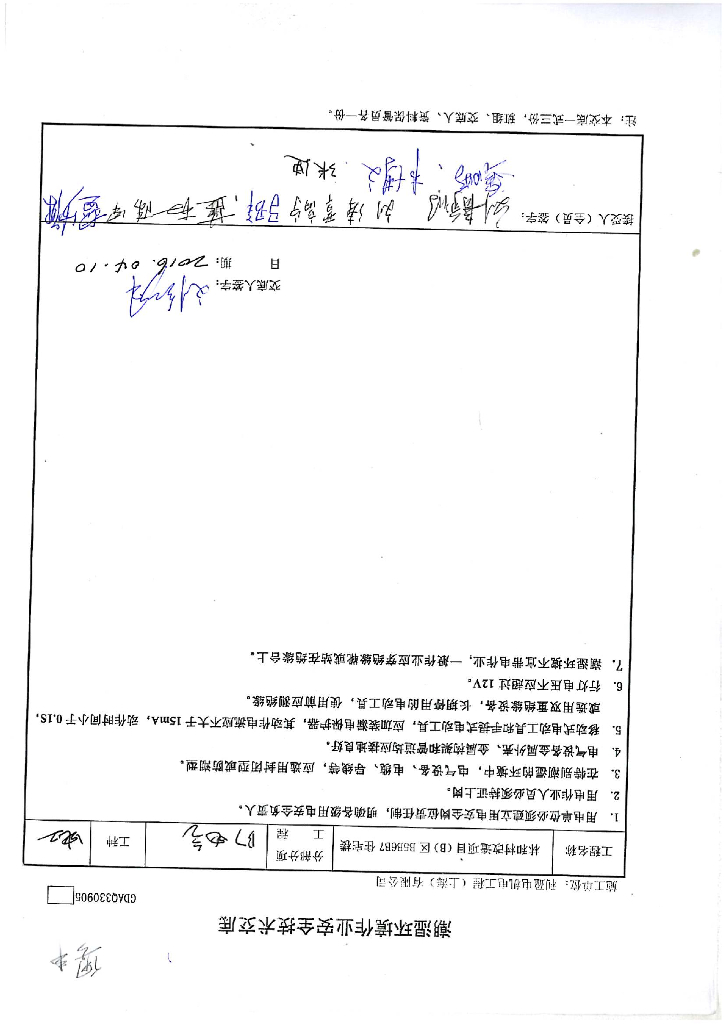 潮湿环境作业安全技术交底
GDAQ330905
施工单位：利盟电机电工程（上海）有限公司
工程名称 林和村改造项目（B）区 B5B6B7 住宅楼 分部分项工程 B7 电气 工种
1. 用电单位必须建立用电安全岗位责任制，明确各级用电安全负责人。
2. 用电作业人员必须持证上岗。
3. 在特别潮湿的环境中，电气设备、电缆、导线等，应选用封闭型或防潮型。
4. 电气设备金属外壳、金属构架和管道均应接地良好。
5. 移动式电动工具和手提式电动工具，应加装漏电保护器，其动作电流应不大于 15mA，动作时间小于 0.1S，
或选用双重绝缘设备，长期停用的电动工具，使用前应测绝缘。
6. 行灯电压不应超过 12V。
7. 潮湿环境不宜带电作业，一般作业应穿绝缘靴或站在绝缘台上。
交底人签字：
日 期：2016.04.10
接受人（全员）签字：
注：本交底一式三份，班组、交底人、资料保管员各一份。